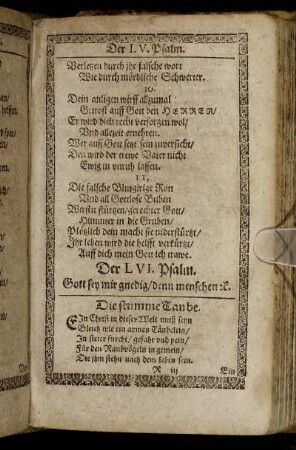 Der LV. Psalm.
Verletzen durch jhr falsche wort
Wie durch mördliche Schwerter.
10.
Dein anligen würff allzumal
Getrost auff Gott den HERREN/
Er wird dich recht versorgen wol/
Vnd allezeit ernehren.
Wer auff Gott setzt sein zuversicht/
Den wird der trewe Vater nicht
Ewig in vnruh lassen.
11.
Die falsche Blutgirige Rott
Vnd all Gottlose Buben
Wirstu stürtzen/ gerechter Gott/
Nimmer in die Gruben/
Plötzlich dein macht sie niderstürtzt/
Jhr leben wird die helfft verkürtzt/
Auff dich mein Gott ich trawe.
Der LVI. Psalm.
Gott sey mir gnedig/ denn menschen ꝛc.
Die stumme Taube.
EIn Christ in dieser Welt muß seyn
Gleich wie ein armes Täubelein/
In steter furcht/ gefahr vnd pein/
Für den Raubvögeln in gemein/
Die jhm stehn nach dem leben sein.
R iij
Ein